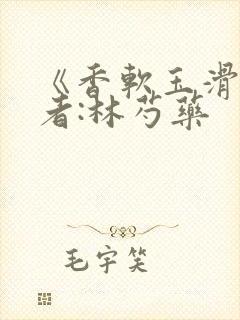 《香軟玉滑
者:林芍藥
毛宇笑